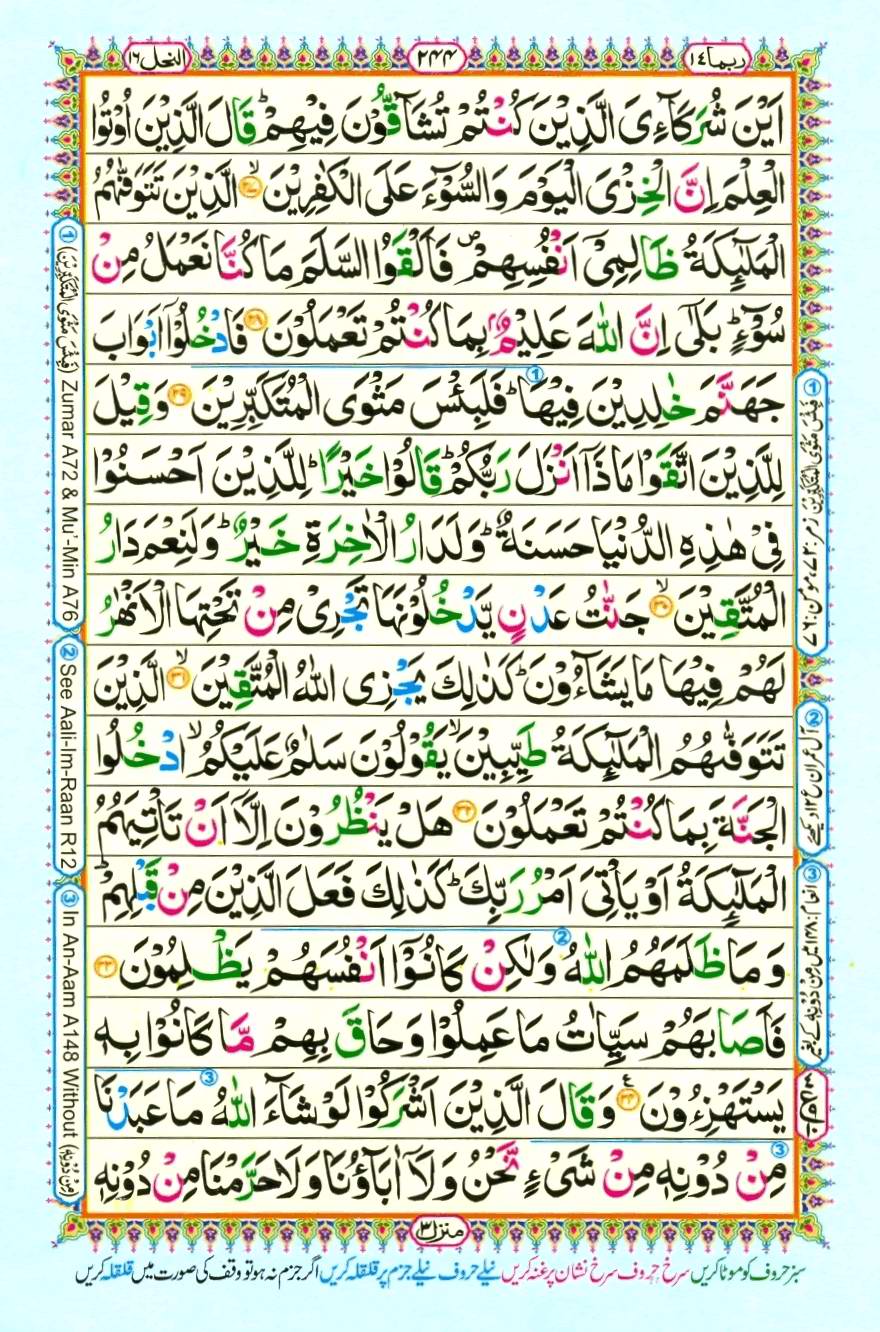 ربما ١٤
٢٤٤
النحل ١٦
اَيْنَ شُرَكَآءِیَ الَّذِيْنَ كُنْتُمْ تُشَآقُّوْنَ فِيْهِمْ ؕ قَالَ الَّذِيْنَ اُوْتُوا
الْعِلْمَ اِنَّ الْخِزْیَ الْيَوْمَ وَالسُّوْٓءَ عَلَى الْكٰفِرِيْنَ ۙ‏﴿۲۷﴾ الَّذِيْنَ تَتَوَفّٰٮهُمُ
الْمَلٰٓئِكَةُ ظَالِمِیْۤ اَنْفُسِهِمْ ۪ فَاَلْقَوُا السَّلَمَ مَا كُنَّا نَعْمَلُ مِنْ
سُوْٓءٍ ؕ بَلٰٓی اِنَّ اللّٰهَ عَلِيْمٌۢ بِمَا كُنْتُمْ تَعْمَلُوْنَ ﴿۲۸﴾ فَادْخُلُوْۤا اَبْوَابَ
جَهَنَّمَ خٰلِدِيْنَ فِيْهَا ؕ فَلَبِئْسَ مَثْوَی الْمُتَكَبِّرِيْنَ ﴿۲۹﴾ وَقِيْلَ
لِلَّذِيْنَ اتَّقَوْا مَاذَاۤ اَنْزَلَ رَبُّكُمْ ؕ قَالُوْا خَيْرًا ؕ لِلَّذِيْنَ اَحْسَنُوْا
فِیْ هٰذِهِ الدُّنْيَا حَسَنَةٌ ؕ وَلَدَارُ الْاٰخِرَةِ خَيْرٌ ؕ وَلَنِعْمَ دَارُ
الْمُتَّقِيْنَ ۙ‏﴿۳۰﴾ جَنّٰتُ عَدْنٍ يَّدْخُلُوْنَهَا تَجْرِیْ مِنْ تَحْتِهَا الْاَنْهٰرُ
لَهُمْ فِيْهَا مَا يَشَآءُوْنَ ؕ كَذٰلِكَ يَجْزِی اللّٰهُ الْمُتَّقِيْنَ ۙ‏﴿۳۱﴾ الَّذِيْنَ
تَتَوَفّٰٮهُمُ الْمَلٰٓئِكَةُ طَيِّبِيْنَ ۙ يَقُوْلُوْنَ سَلٰمٌ عَلَيْكُمُ ۙ ادْخُلُوا
الْجَنَّةَ بِمَا كُنْتُمْ تَعْمَلُوْنَ ﴿۳۲﴾ هَلْ يَنْظُرُوْنَ اِلَّاۤ اَنْ تَاْتِيَهُمُ
الْمَلٰٓئِكَةُ اَوْ يَاْتِیَ اَمْرُ رَبِّكَ ؕ كَذٰلِكَ فَعَلَ الَّذِيْنَ مِنْ قَبْلِهِمْ ؕ
وَمَا ظَلَمَهُمُ اللّٰهُ وَلٰكِنْ كَانُوْۤا اَنْفُسَهُمْ يَظْلِمُوْنَ ﴿۳۳﴾
فَاَصَابَهُمْ سَيِّاٰتُ مَا عَمِلُوْا وَحَاقَ بِهِمْ مَّا كَانُوْا بِهٖ
يَسْتَهْزِءُوْنَ ﴿۳۴﴾ وَقَالَ الَّذِيْنَ اَشْرَكُوْا لَوْ شَآءَ اللّٰهُ مَا عَبَدْنَا
مِنْ دُوْنِهٖ مِنْ شَیْءٍ نَّحْنُ وَلَاۤ اٰبَآؤُنَا وَلَا حَرَّمْنَا مِنْ دُوْنِهٖ
منزل ٣
① فَبِئْسَ مَثْوَی الْمُتَكَبِّرِيْنَ زمر: ۷۲، مومن: ۷۶
② آل عمران ع ۱۲ دیکھئے
③ انعام: ۱۴۸ میں مِنْ دُوْنِهٖ کے بغیر
① (فَبِئْسَ مَثْوَی الْمُتَكَبِّرِيْنَ) Zumar A72 & Mu'-Min A76
② See Aali-Im-Raan R12
③ In An-Aam A148 Without (مِنْ دُوْنِهٖ)
سبز حروف کو موٹا کریں سرخ حروف سرخ نشان پر غنہ کریں نیلے حروف نیلے جزم پر قلقلہ کریں اگر جزم نہ ہو تو وقف کی صورت میں قلقلہ کریں